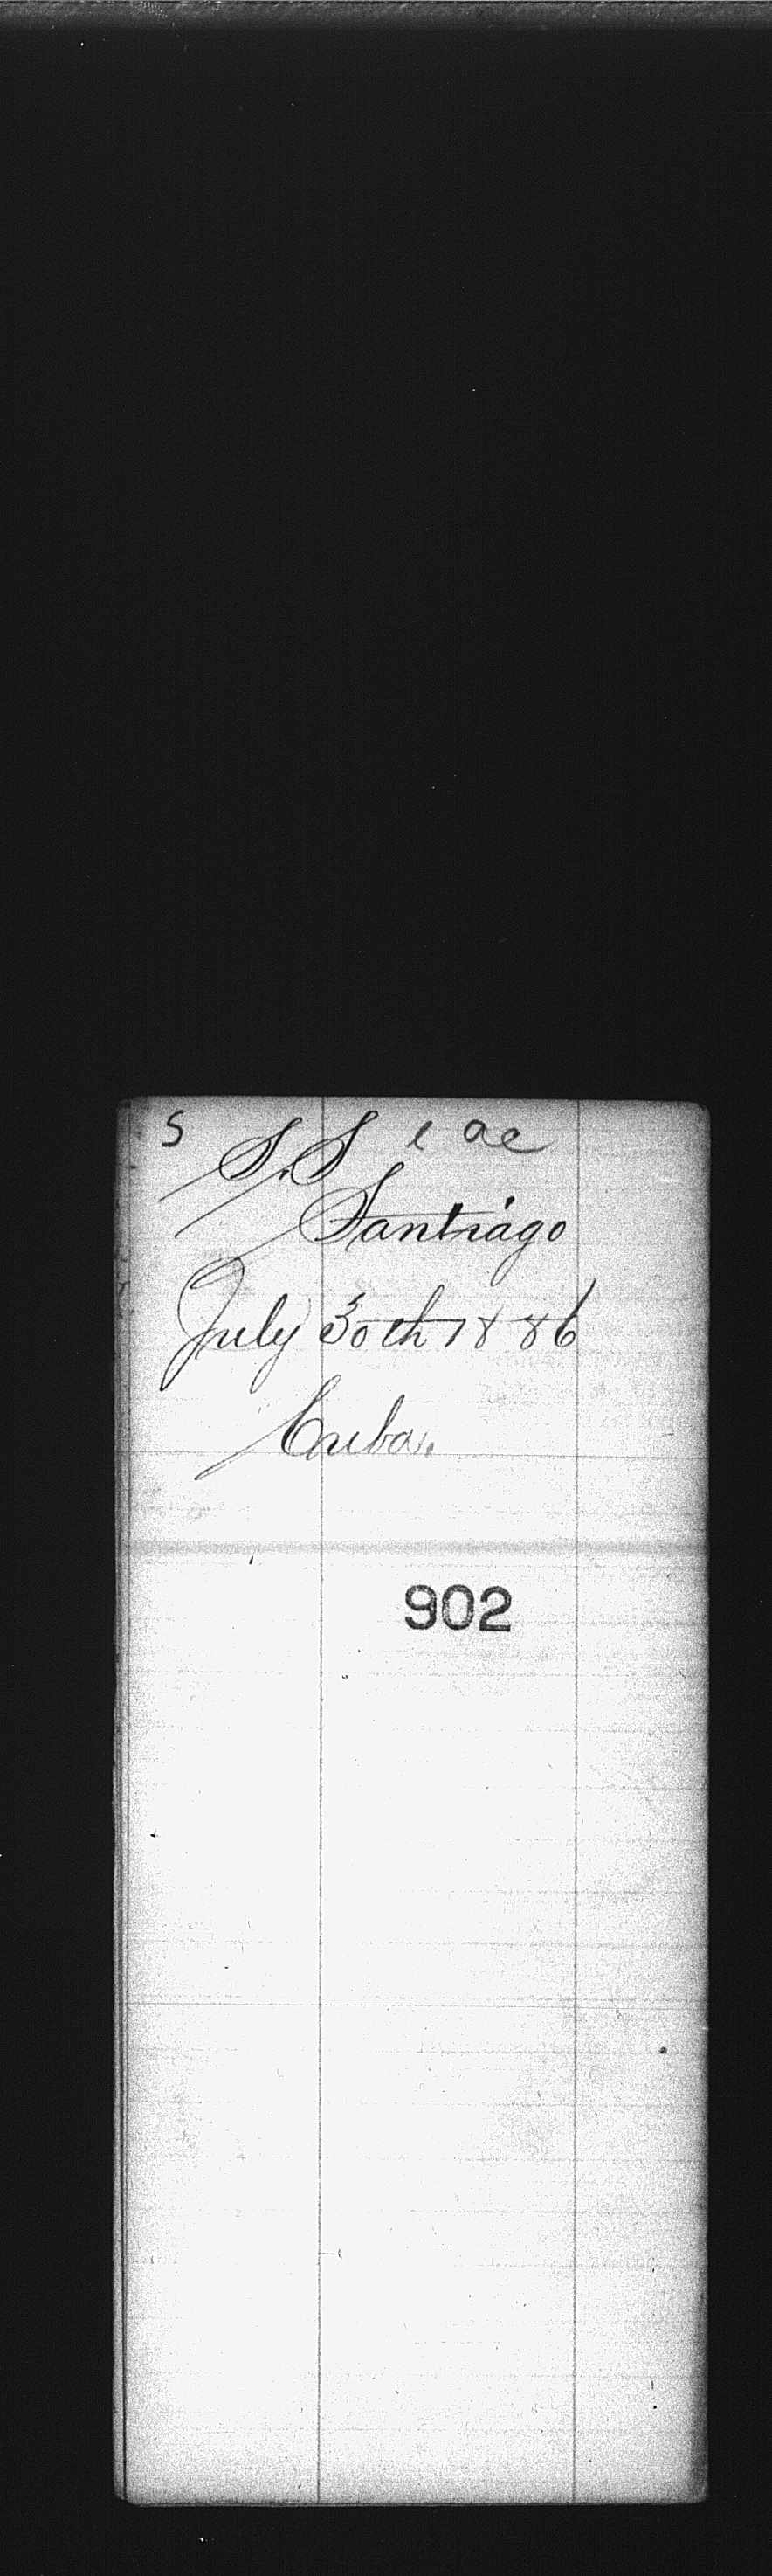 S
S.S
Santiago
July 30th 1886
Cuba.
902